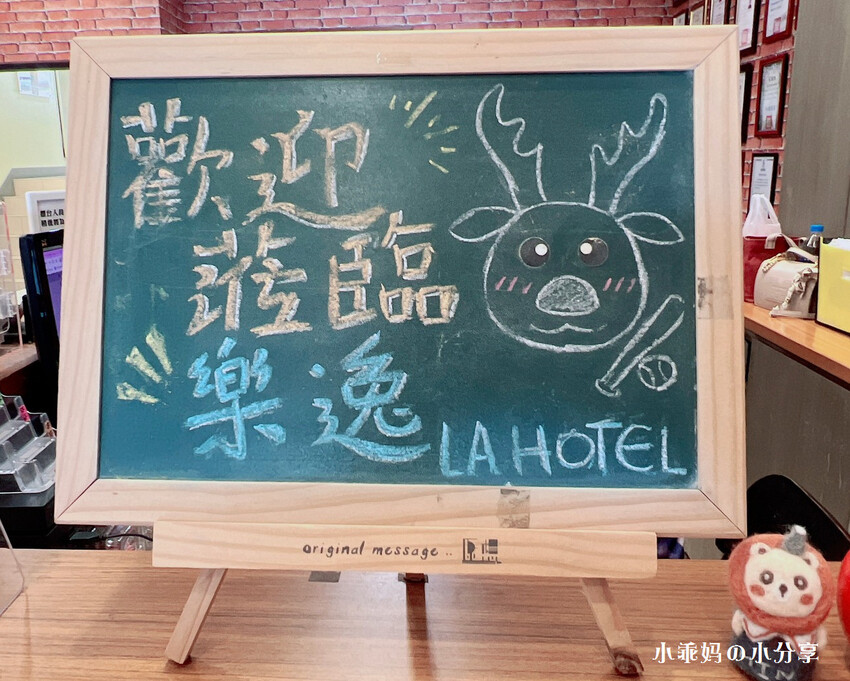 歡迎
蒞臨
樂逸
LA HOTEL
original message ..
小乖妈の小分享